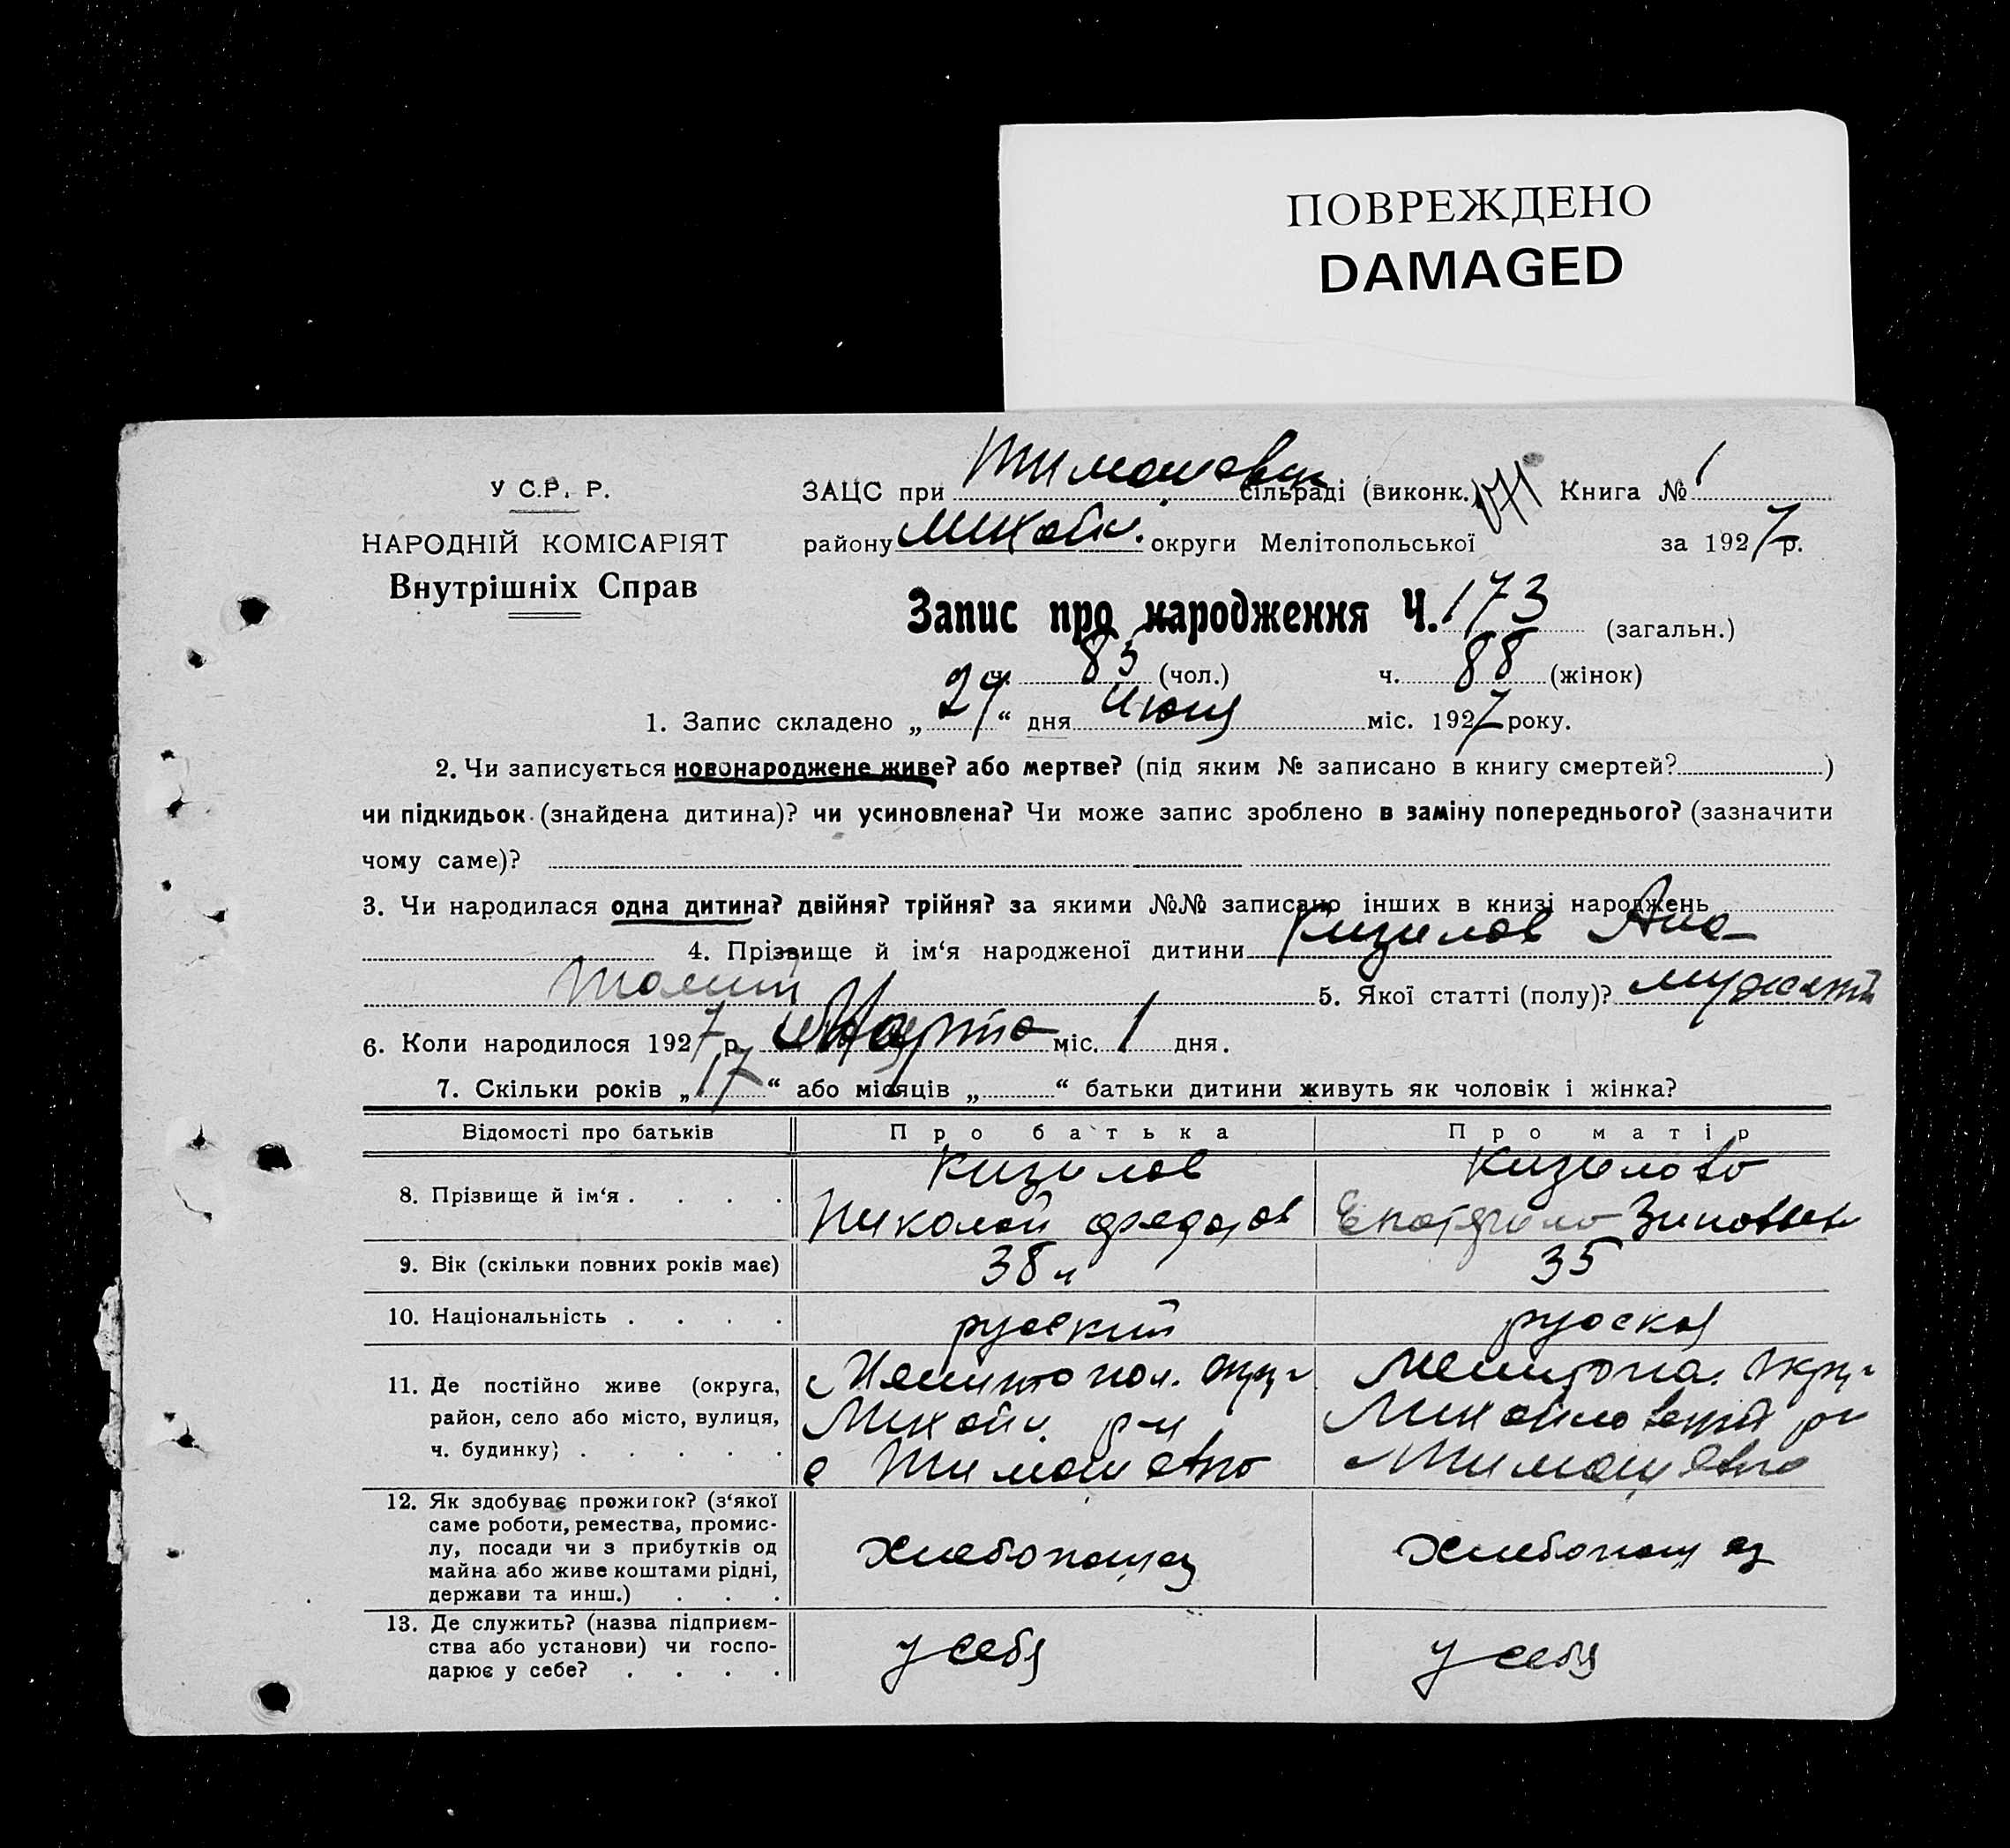 ПОВРЕЖДЕНО
DAMAGED
У С.Р. Р.
НАРОДНІЙ КОМІСАРІЯТ
Внутрішніх Справ
ЗАЦС при Тимошевск сільраді (виконк.) Книга № 1
району Михайл. округи Мелітопольської за 1927 р.
Запис про народження Ч. 173 (загальн.)
ч. 85 (чол.) ч. 88 (жінок)
1. Запис складено „29“ дня Июня міс. 1927 року.
2. Чи записується новонароджене живе? або мертве? (під яким № записано в книгу смертей? )
чи підкидьок (знайдена дитина)? чи усиновлена? Чи може запис зроблено в заміну попереднього? (зазначити
чому саме)?
3. Чи народилася одна дитина? двійня? трійня? за якими №№ записано інших в книзі народжень
4. Прізвище й ім‘я народженої дитини Кизилов Ана
толий 5. Якої статті (полу)? мужской
6. Коли народилося 1927 р. Марта міс. 1 дня.
7. Скільки років „17“ або місяців „ “ батьки дитини живуть як чоловік і жінка?
Відомості про батьків Про батька Про матір
8. Прізвище й ім‘я . . . . Кизилов Николай Федотов Кизилова Екатерина Зиновьев
9. Вік (скільки повних років має) 38 л 35
10. Національність . . . . русский русская
11. Де постійно живе (округа, Мелитопол. округ Мелитопол. Округ
район, село або місто, вулиця, Михайл. р-н Михайловский рн
ч. будинку) . . . . . с Тимошевка Тимошевка
12. Як здобуває прожиток? (з‘якої
саме роботи, ремества, промис-
лу, посади чи з прибутків од хлебопашец хлебопашец
майна або живе коштами рідні,
держави та инш.) . . .
13. Де служить? (назва підприєм-
ства або установи) чи госпо- у себя у себя
дарює у себе? . . . .